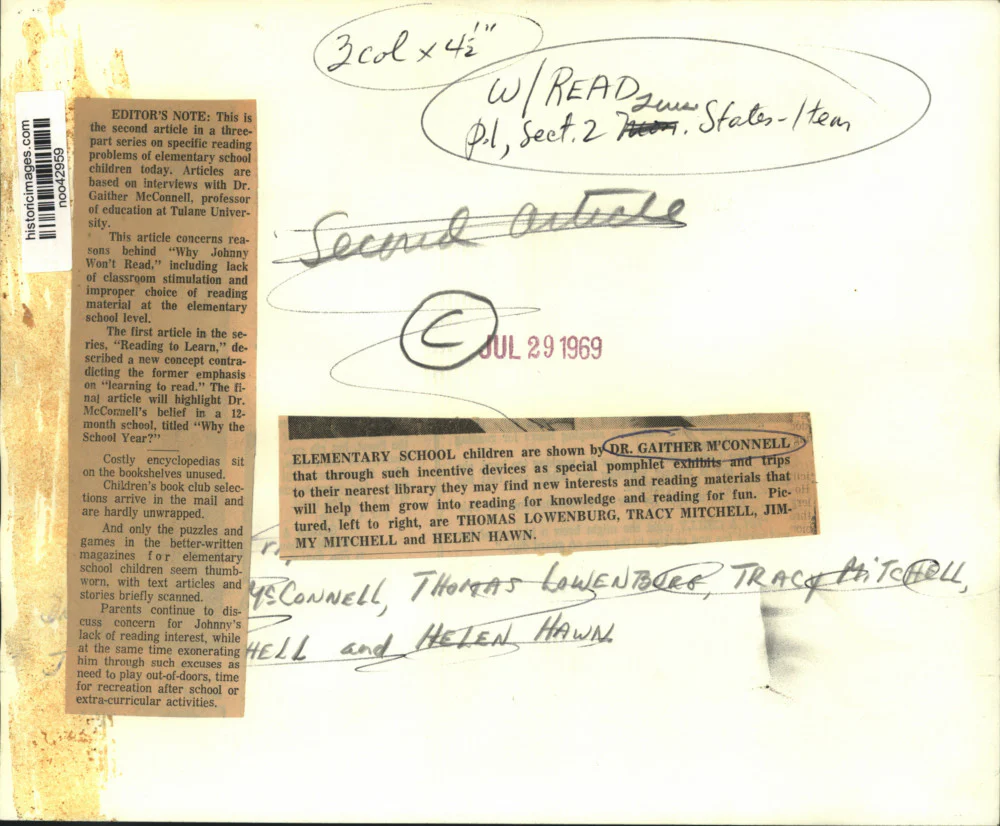 3 col x 4½"
W/ READ
p.1, Sect. 2 States-Item
historicimages.com
noo42959
EDITOR'S NOTE: This is
the second article in a three-
part series on specific reading
problems of elementary school
children today. Articles are
based on interviews with Dr.
Gaither McConnell, professor
of education at Tulane Univer-
sity.
This article concerns rea-
sons behind "Why Johnny
Won't Read," including lack
of classroom stimulation and
improper choice of reading
material at the elementary
school level.
The first article in the se-
ries, "Reading to Learn," de-
scribed a new concept contra-
dicting the former emphasis
on "learning to read." The fi-
nal article will highlight Dr.
McConnell's belief in a 12-
month school, titled "Why the
School Year?"
Costly encyclopedias sit
on the bookshelves unused.
Children's book club selec-
tions arrive in the mail and
are hardly unwrapped.
And only the puzzles and
games in the better-written
magazines for elementary
school children seem thumb-
worn, with text articles and
stories briefly scanned.
Parents continue to dis-
cuss concern for Johnny's
lack of reading interest, while
at the same time exonerating
him through such excuses as
need to play out-of-doors, time
for recreation after school or
extra-curricular activities.
Second article
C
JUL 29 1969
ELEMENTARY SCHOOL children are shown by DR. GAITHER M'CONNELL
that through such incentive devices as special pomphlet exhibits and trips
to their nearest library they may find new interests and reading materials that
will help them grow into reading for knowledge and reading for fun. Pic-
tured, left to right, are THOMAS LOWENBURG, TRACY MITCHELL, JIM-
MY MITCHELL and HELEN HAWN.
McCONNELL, THOMAS LOWENBURG, TRACY MITCHELL,
HELL and HELEN HAWN